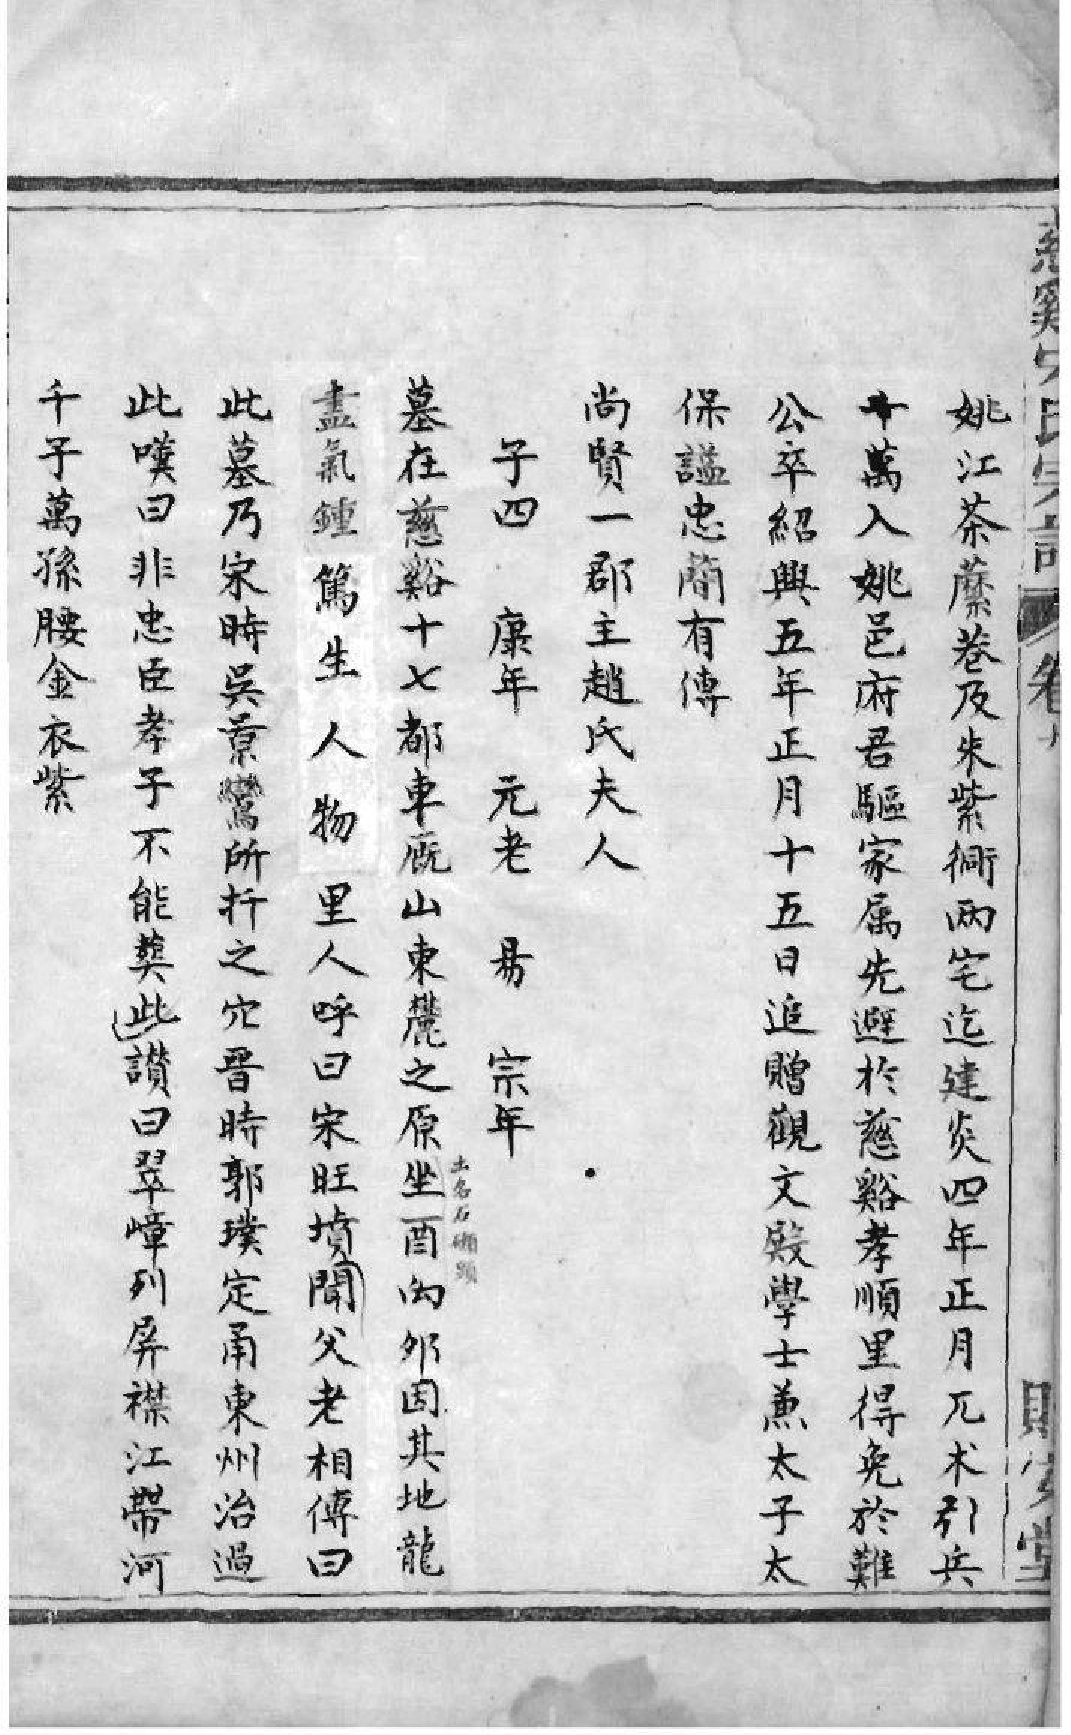 姚江茶蘼巷及朱紫衕兩宅迄建炎四年正月兀朮引兵
十萬入姚邑府君驅家属先避於慈谿孝順里得免於難
公卒紹興五年正月十五日追贈觀文殿學士兼太子太
保謚忠簡有傳
尚賢一郡主趙氏夫人
子四 康年 元老 易 宗年
墓在慈谿十七都車廐山東麓之原坐酉向卯因其地龍
土名石
盡氣鍾篤生人物里人呼曰宋旺墳聞父老相傳曰
此墓乃宋時吳景鸞所扦之穴晋時郭璞定甬東州治過
此嘆曰非忠臣孝子不能葬此讚曰翠嶂列屏襟江帶河
千子萬孫腰金衣紫